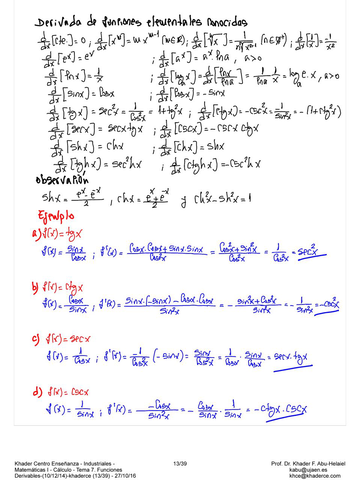 Derivada de funciones elementales conocidas
d/dx [cte.] = 0 ; d/dx [x^m] = m x^(m-1) (m∈R) ;
d/dx [e^x] = e^x ; d/dx [a^x] = a^x ln a, a>0
d/dx [ln x] = 1/x ; d/dx [log_a x] = d/dx [ln x/ln a] = 1/ln a · 1/x = log_a e · 1/x, a>0
d/dx [sin x] = cos x ; d/dx [cos x] = -sin x
d/dx [tg x] = sec²x = 1/cos²x = 1+tg²x ; d/dx [ctg x] = -csc²x = -1/sin²x = -(1+ctg²x)
d/dx [sec x] = sec x tg x ; d/dx [csc x] = -csc x ctg x
d/dx [sh x] = ch x ; d/dx [ch x] = sh x
d/dx [tgh x] = sec²h x ; d/dx [ctgh x] = -csc²h x
Observación
sh x = (e^x - e^-x)/2 , ch x = (e^x + e^-x)/2 y ch²x - sh²x = 1
Ejemplo
a) f(x) = tg x
f(x) = sin x/cos x ; f'(x) = (cos x · cos x + sin x · sin x)/cos²x = (cos²x + sin²x)/cos²x = 1/cos²x = sec²x
b) f(x) = ctg x
f(x) = cos x/sin x ; f'(x) = (sin x · (-sin x) - cos x · cos x)/sin²x = -(sin²x + cos²x)/sin²x = -1/sin²x = -csc²x
c) f(x) = sec x
f(x) = 1/cos x ; f'(x) = -1/cos²x (-sin x) = sin x/cos²x = 1/cos x · sin x/cos x = sec x · tg x
d) f(x) = csc x
f(x) = 1/sin x ; f'(x) = -cos x/sin²x = -cos x/sin x · 1/sin x = -ctg x · csc x
Khader Centro Enseñanza - Industriales - 13/39 Prof. Dr. Khader F. Abu-Helaiel
Matemáticas I - Cálculo - Tema 7. Funciones kabu@ujaen.es
Derivables-(10/12/14)-khaderce (13/39) - 27/10/16 khce@khaderce.com